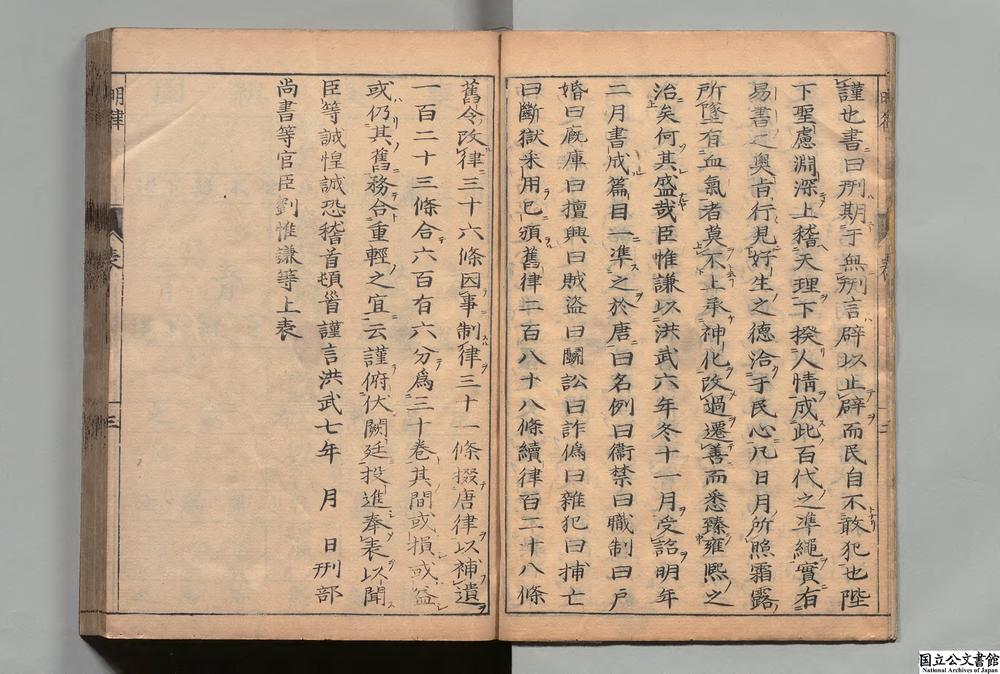 謹也書曰刑期于無刑言辟以止辟而民自不敢犯也陛
下聖慮淵深上稽天理下揆人情成此百代之準繩實有
易書之奧旨行見好生之德洽于民心凡日月所照霜露
所墜有血氣者莫不上承神化改過遷善而悉臻雍熙之
治矣何其盛哉臣惟謙以洪武六年冬十一月受詔明年
二月書成篇目一準之於唐曰名例曰衞禁曰職制曰戶
婚曰厩庫曰擅興曰賊盜曰鬬訟曰詐僞曰雜犯曰捕亡
曰斷獄采用已頒舊律二百八十八條續律百二十八條
舊令改律三十六條因事制律三十一條掇唐律以補遺
一百二十三條合六百有六分爲三十卷其間或損或益
或仍其舊務合重輕之宜云謹俯伏闕廷投進奉表以聞
臣等誠惶誠恐稽首頓首謹言洪武七年 月 日刑部
尚書等官臣劉惟謙等上表
明律 表 三
国立公文書館
National Archives of Japan